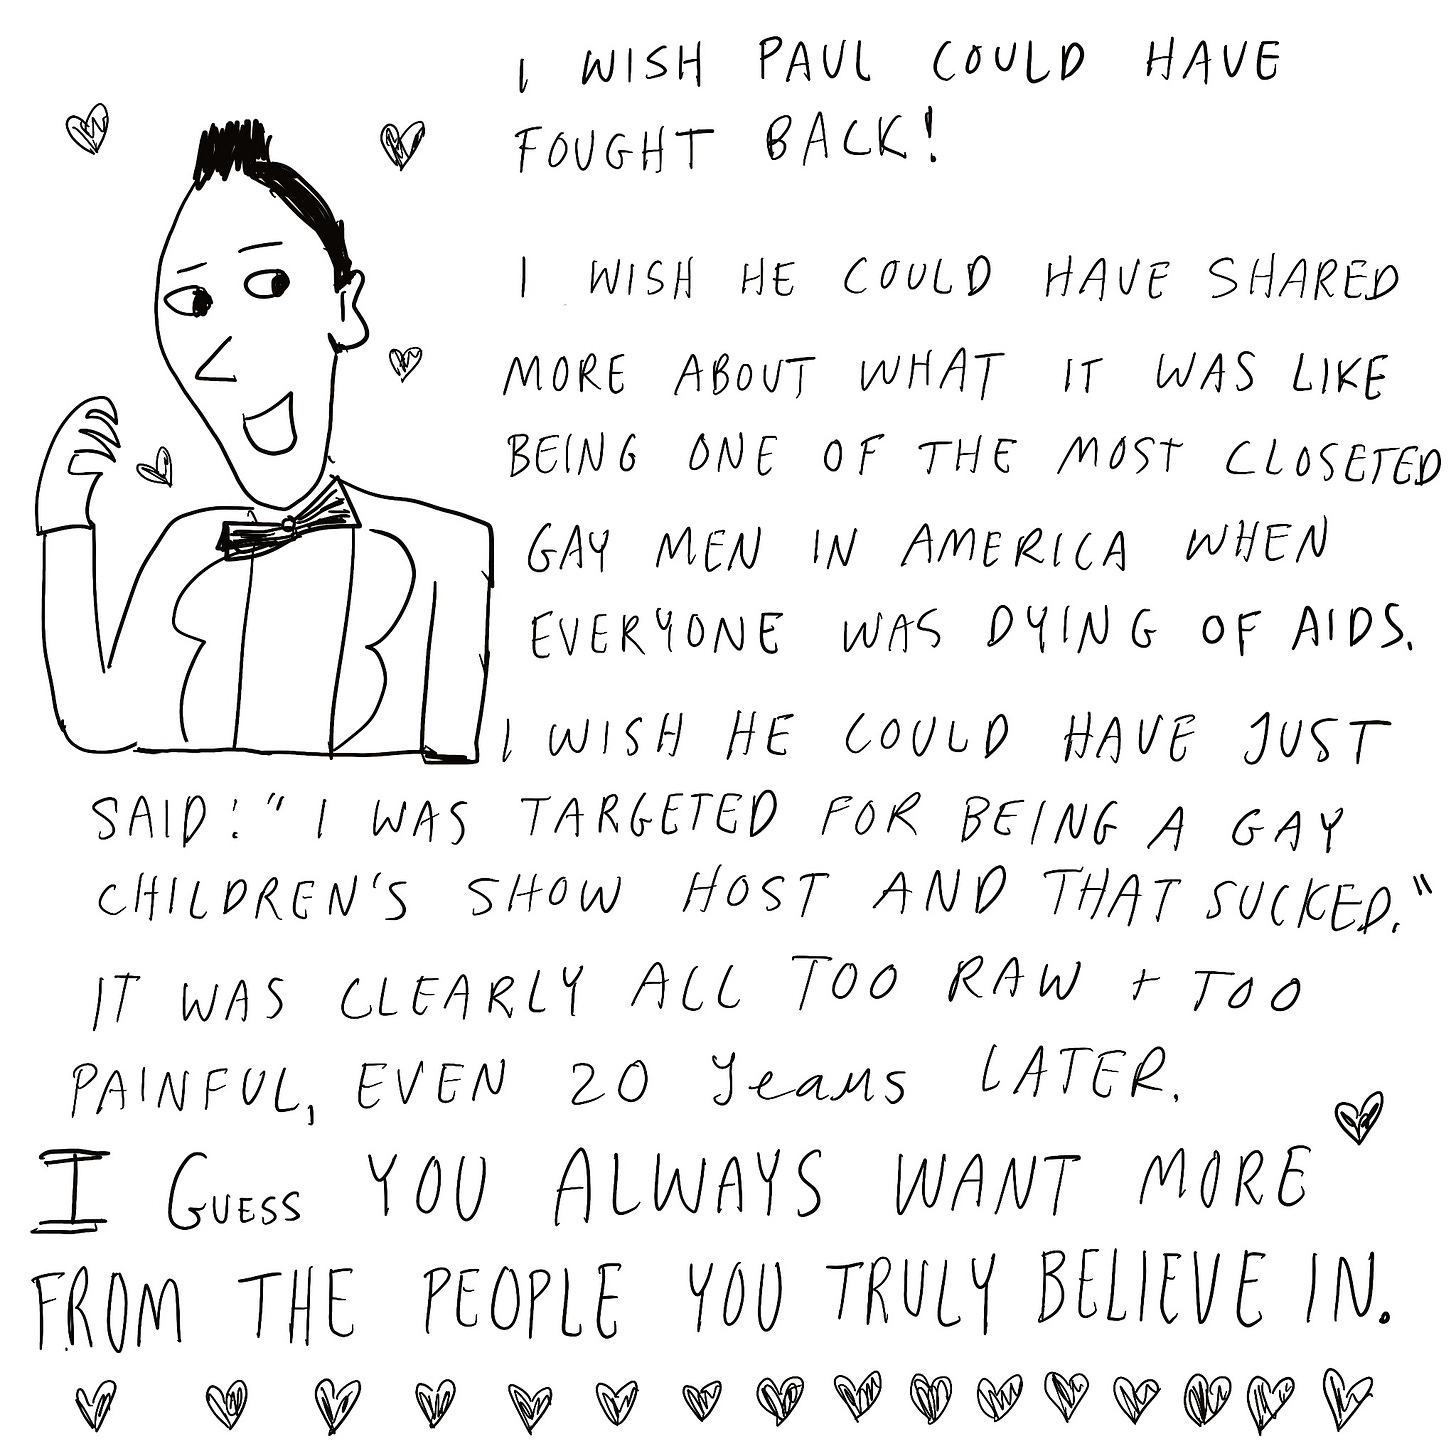 I WISH PAUL COULD HAVE
FOUGHT BACK!
I WISH HE COULD HAVE SHARED
MORE ABOUT WHAT IT WAS LIKE
BEING ONE OF THE MOST CLOSETED
GAY MEN IN AMERICA WHEN
EVERYONE WAS DYING OF AIDS.
I WISH HE COULD HAVE JUST
SAID: "I WAS TARGETED FOR BEING A GAY
CHILDREN'S SHOW HOST AND THAT SUCKED."
IT WAS CLEARLY ALL TOO RAW + TOO
PAINFUL, EVEN 20 Years LATER.
I GUESS YOU ALWAYS WANT MORE
FROM THE PEOPLE YOU TRULY BELIEVE IN.